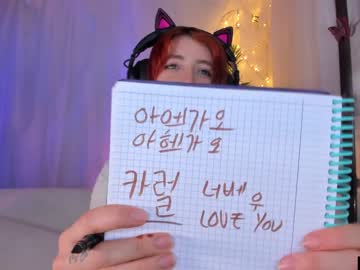 아에가오
아헤가오
카럴 너베우
LOVE YOU